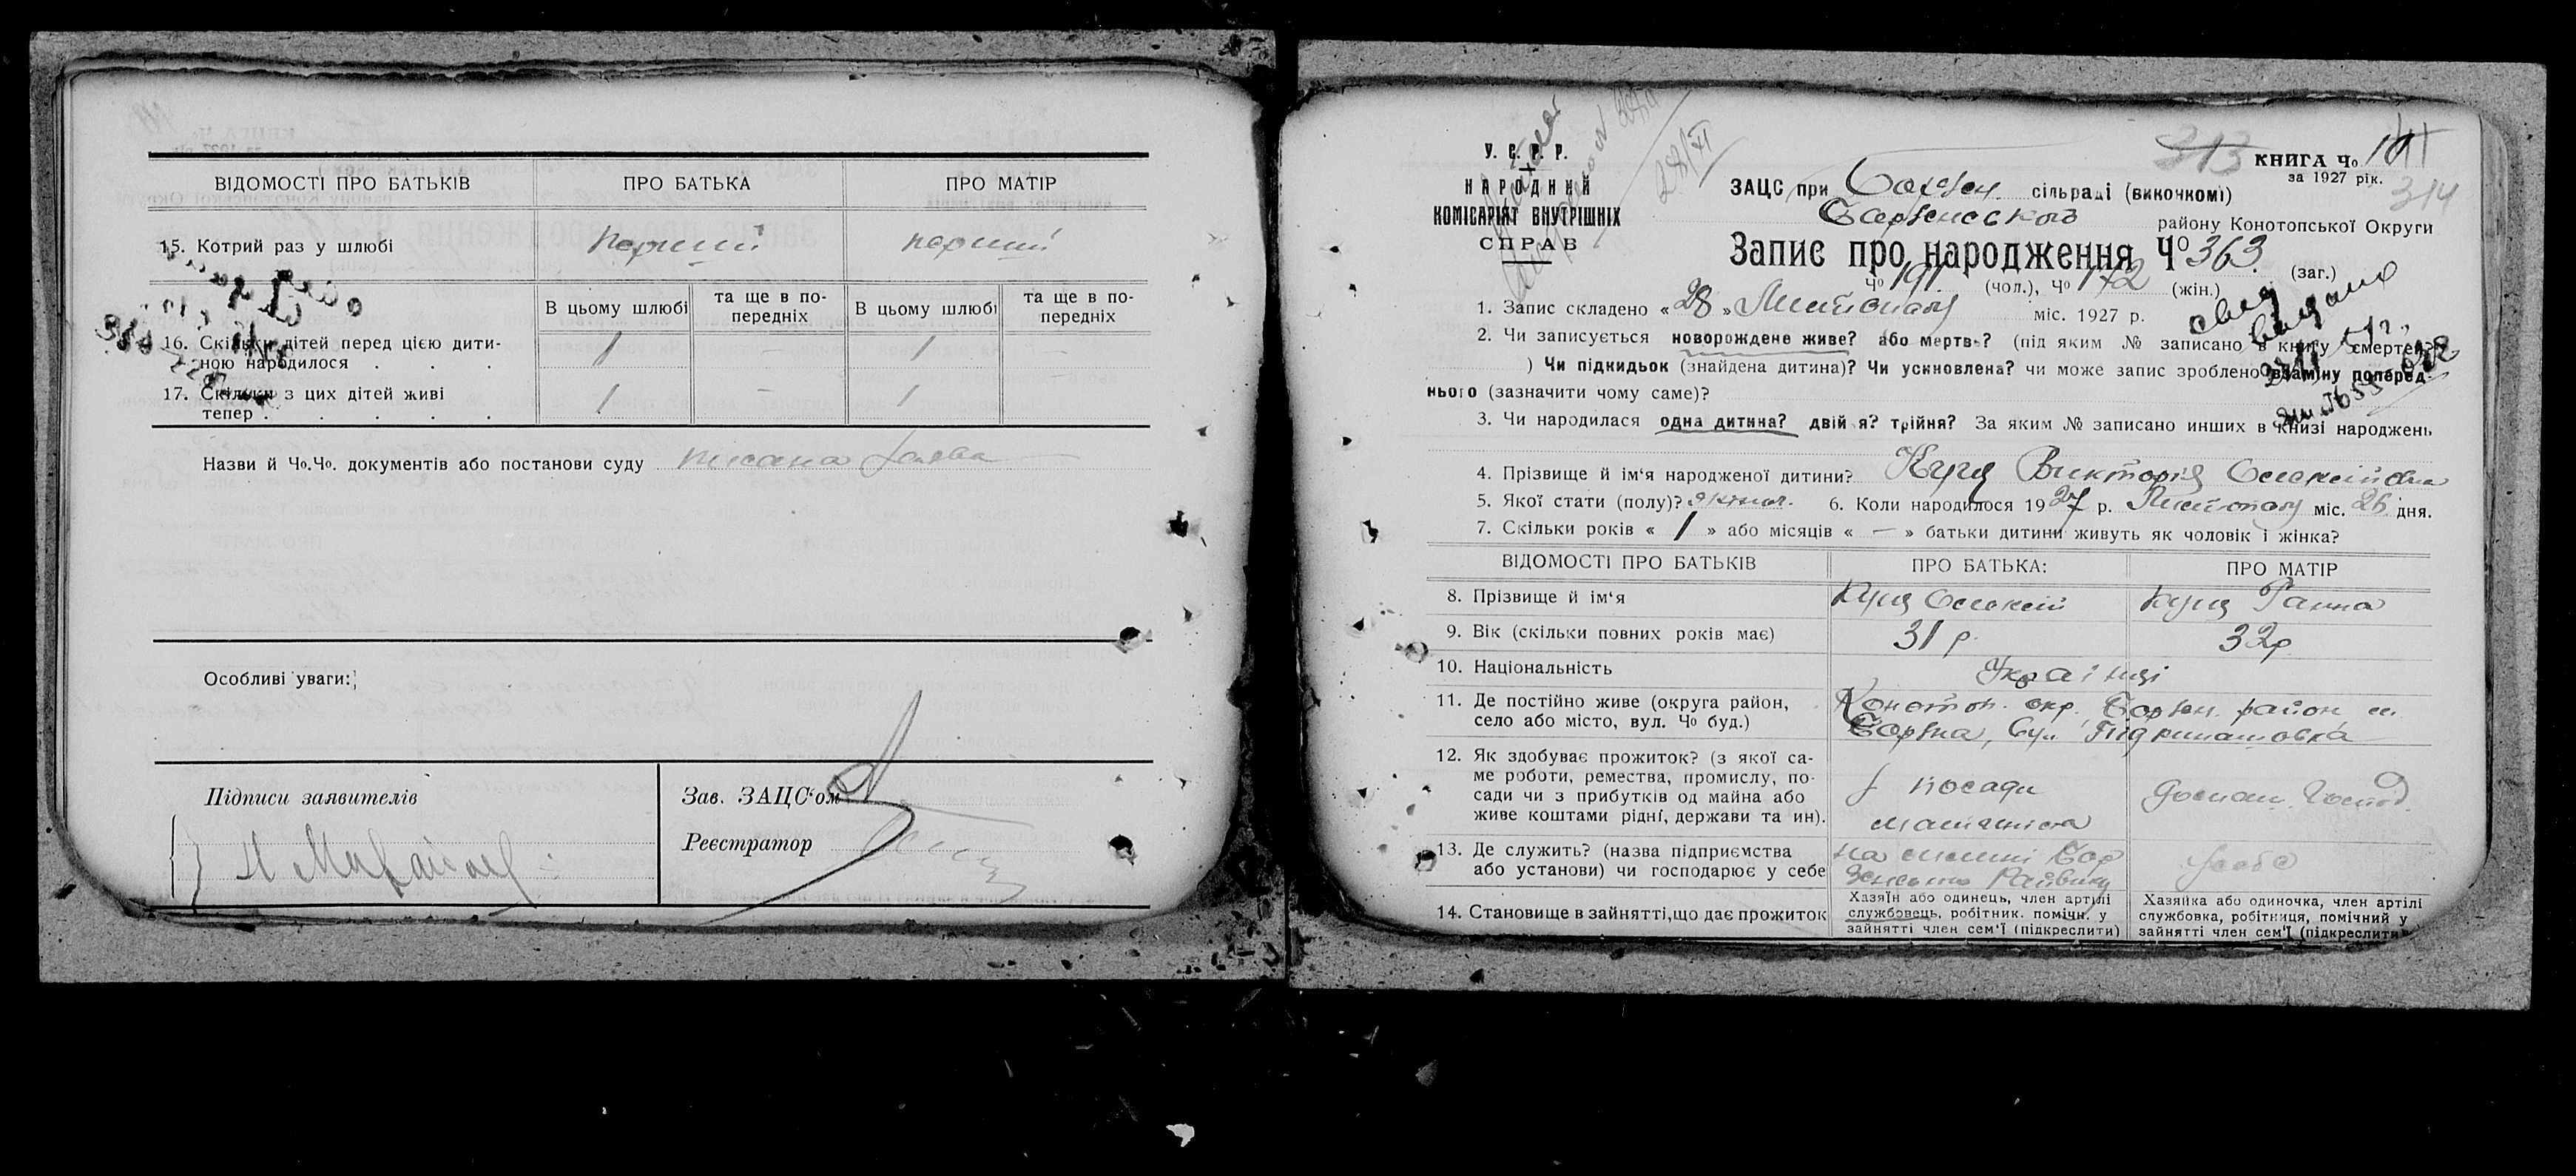 ВІДОМОСТІ ПРО БАТЬКІВ ПРО БАТЬКА ПРО МАТІР
15. Котрий раз у шлюбі перший перший
В цьому шлюбі та ще в по-передніх В цьому шлюбі та ще в по-передніх
16. Скільки дітей перед цією дити-
ною народилося . . . 1 — 1 —
17. Скільки з цих дітей живі
тепер . . . . . 1 — 1
Назви й Чо.Чо. документів або постанови суду
Особливі уваги:
Підписи заявителів
Зав. ЗАЦС'ом
Реєстратор
У. С. Р. Р.
НАРОДНИЙ
КОМІСАРІЯТ ВНУТРІШНІХ
СПРАВ
28/XI
313 КНИГА Чо
за 1927 рік.
314
ЗАЦС при Борзен. сільраді (викочкомі)
Борзенського району Конотопської Округи
Запис про народження Чо 363 (заг.)
Чо 191 (чол.), Чо 172 (жін.)
1. Запис складено « 28 » Листопаду міс. 1927 р.
2. Чи записується новорождене живе? або мертве? (під яким № записано в книгу смертей?
) Чи підкидьок (знайдена дитина)? Чи усиновлена? чи може запис зроблено взаміну поперед-
нього (зазначити чому саме)?
3. Чи народилася одна дитина? двійя? трійня? За яким № записано инших в книзі народжень
4. Прізвище й ім'я народженої дитини? Кущ Виктория Олексіївна
5. Якої стати (полу)? жіноч. 6. Коли народилося 1927 р. Листопаду міс. 26 дня.
7. Скільки років « 1 » або місяців « — » батьки дитини живуть як чоловік і жінка?
ВІДОМОСТІ ПРО БАТЬКІВ ПРО БАТЬКА: ПРО МАТІР
8. Прізвище й ім'я Кущ Олексій Кущ Ганна
9. Вік (скільки повних років має) 31 р. 32 р
10. Національність Українці
11. Де постійно живе (округа район, Конотоп. окр. Борзен. район, м.
село або місто, вул. Чо буд.) Борзна, вул.
12. Як здобуває прожиток? (з якої са-
ме роботи, ремества, промислу, по-
сади чи з прибутків од майна або з посади домаш. господ.
живе коштами рідні, держави та ин). машиніста
13. Де служить? (назва підприємства
або установи) чи господарює у себе
14. Становище в зайнятті, що дає прожиток
Хазяїн або одинець, член артілі
службовець, робітник. помічн. у
зайнятті член сем'ї (підкреслити)
Хазяйка або одиночка, член артілі
службовка, робітниця, помічний у
зайнятті член сем'ї (підкреслити)